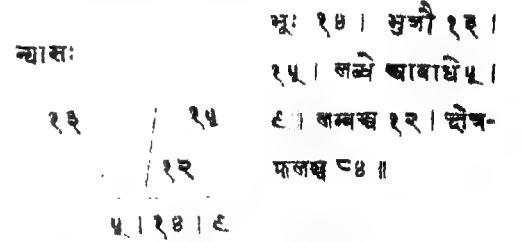 न्यासः
१३
१५
१२
५ । १४ । ९
भूः १४ । भुजौ १३ ।
१५ । लब्धे आबाधे ५ ।
९ । लम्बश्च १२ । क्षेत्र-
फलञ्च ८४ ॥